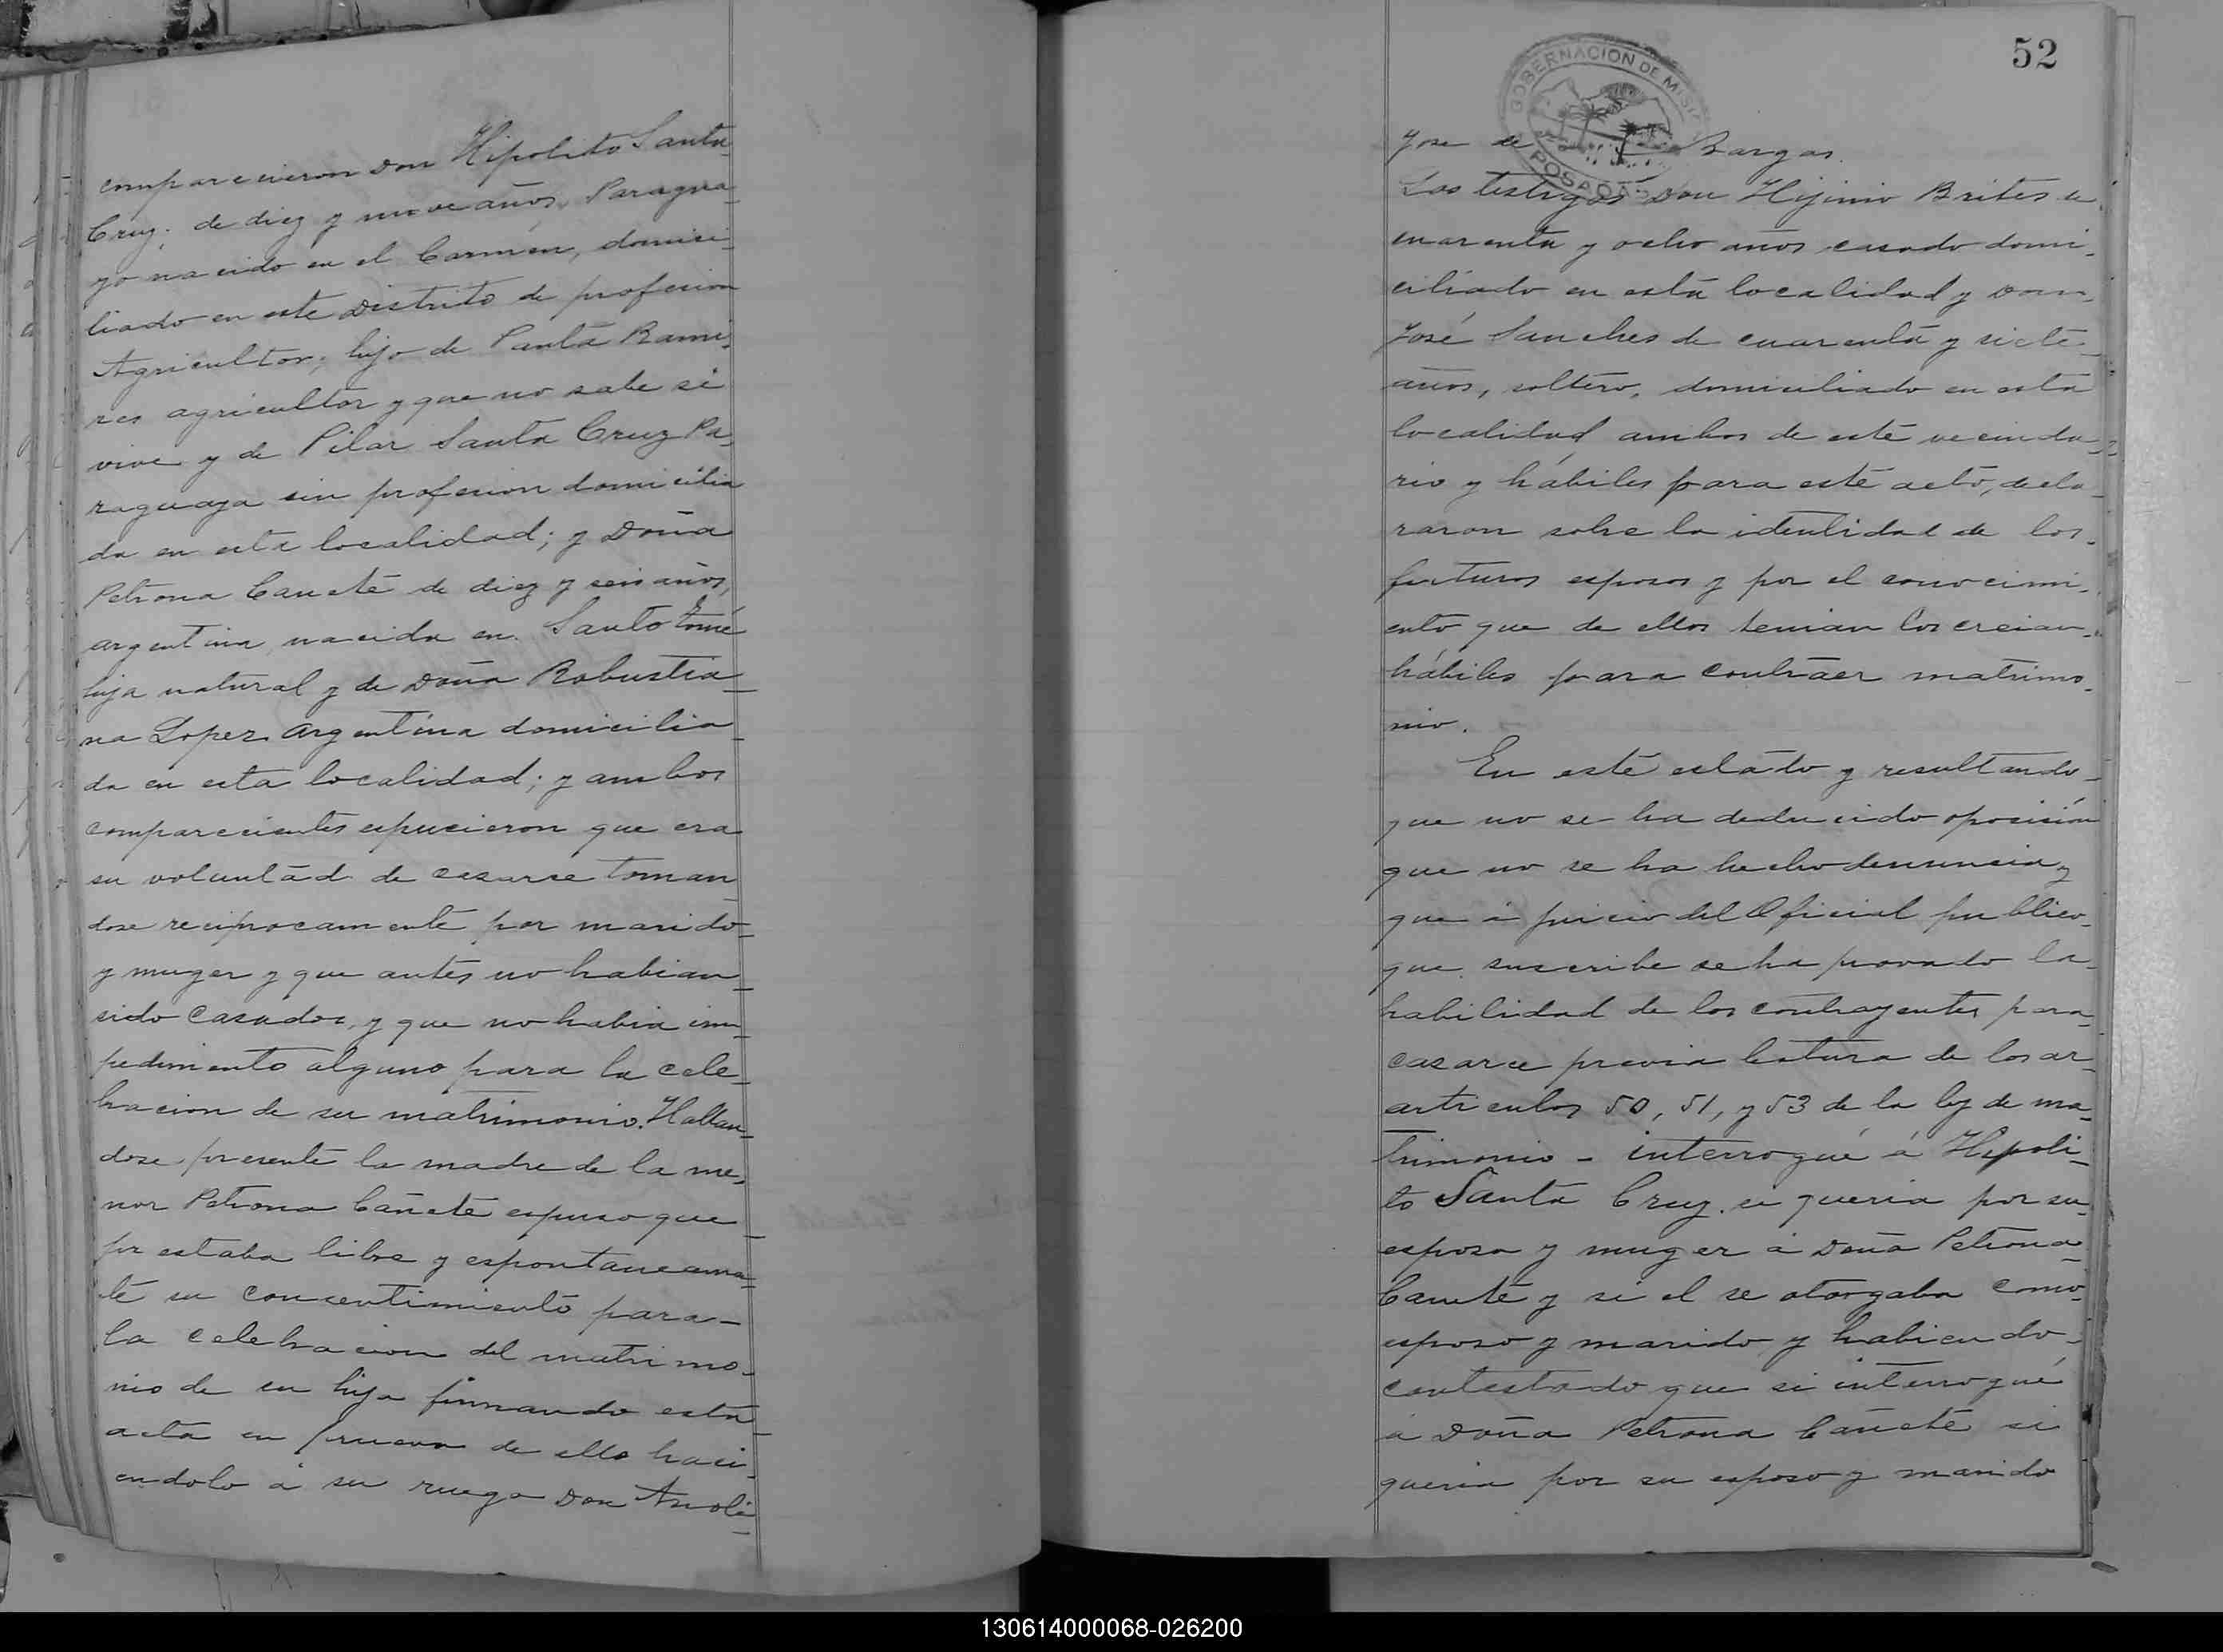 comparecieron Don Hipolito Santa
Cruz, de diez y nueve años, Paragua
yo nacido en el Carmen, domici
liado en este Distrito de profesion
Agricultor; hijo de Panta Rami
res agricultor y que no sabe si
vive y de Pilar Santa Cruz Pa
raguaya sin profesion domicilia
da en esta localidad; y Doña
Petrona Cañete de diez y seis años,
argentina, nacida en Santo Tomé
hija natural y de Doña Robustia
na Lopez Argentina domicilia
da en esta localidad; y ambos
comparecientes espucieron que era
su voluntad de casarce toman
dose reciprocamente por marido
y muger y que antes no habian
sido casados, y que no habia im
pedimento alguno para la cele
bracion de su matrimonio. Hallan
dose presente la madre de la me
nor Petrona Cañete espuso que
por estaba libre y espontaneama
te su consentimiento para
la celebracion del matrimo
nio de su hija firmando esta
acta en prueva de ello haci
endolo á su ruego Don
52
GOBERNACION DE MISI
POSADAS
Jose de Bargas.
Los testigos Don Hijinio Brites de
cuarenta y ocho años casado domi
ciliado en esta localidad y Don
José Sanches de cuarenta y siete
años, soltero, domiciliado en esta
localidad ambos de este vecinda
rio y hábiles para este acto, decla
raron sobre la identidad de los
futuros esposos y por el conocimi
ento que de ellos tenian los creian
hábiles para contraer matrimo
nio.
En este estado y resultando
que no se ha deducido oposisión
que no se ha hecho denuncia y
que á juicio del Oficial publico
que suscribe se ha provado la
habilidad de los contrayentes para
casarce previa letura de los ar
articulos 50, 51, y 53 de la ley de ma
trimonio - interrogué á Hipoli
to Santa Cruz si queria por su
esposa y muger á Doña Petrona
Cañete y si el se otorgaba como
esposo y marido y habiendo
contestado que si interrogué
á Doña Petrona Cañete si
queria por su esposo y marido
130614000068-026200